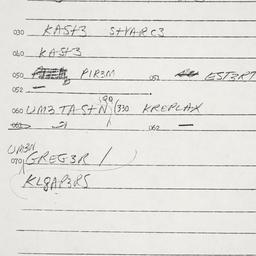 030 KAST3 STVARC3
040 KAST3
050 PIR3M 051 EST3RT
052 —
060 UM3TASTN 99 (330 KREPLAX
062 —
UM3N
070 GREG3R /
KLGAP3RS